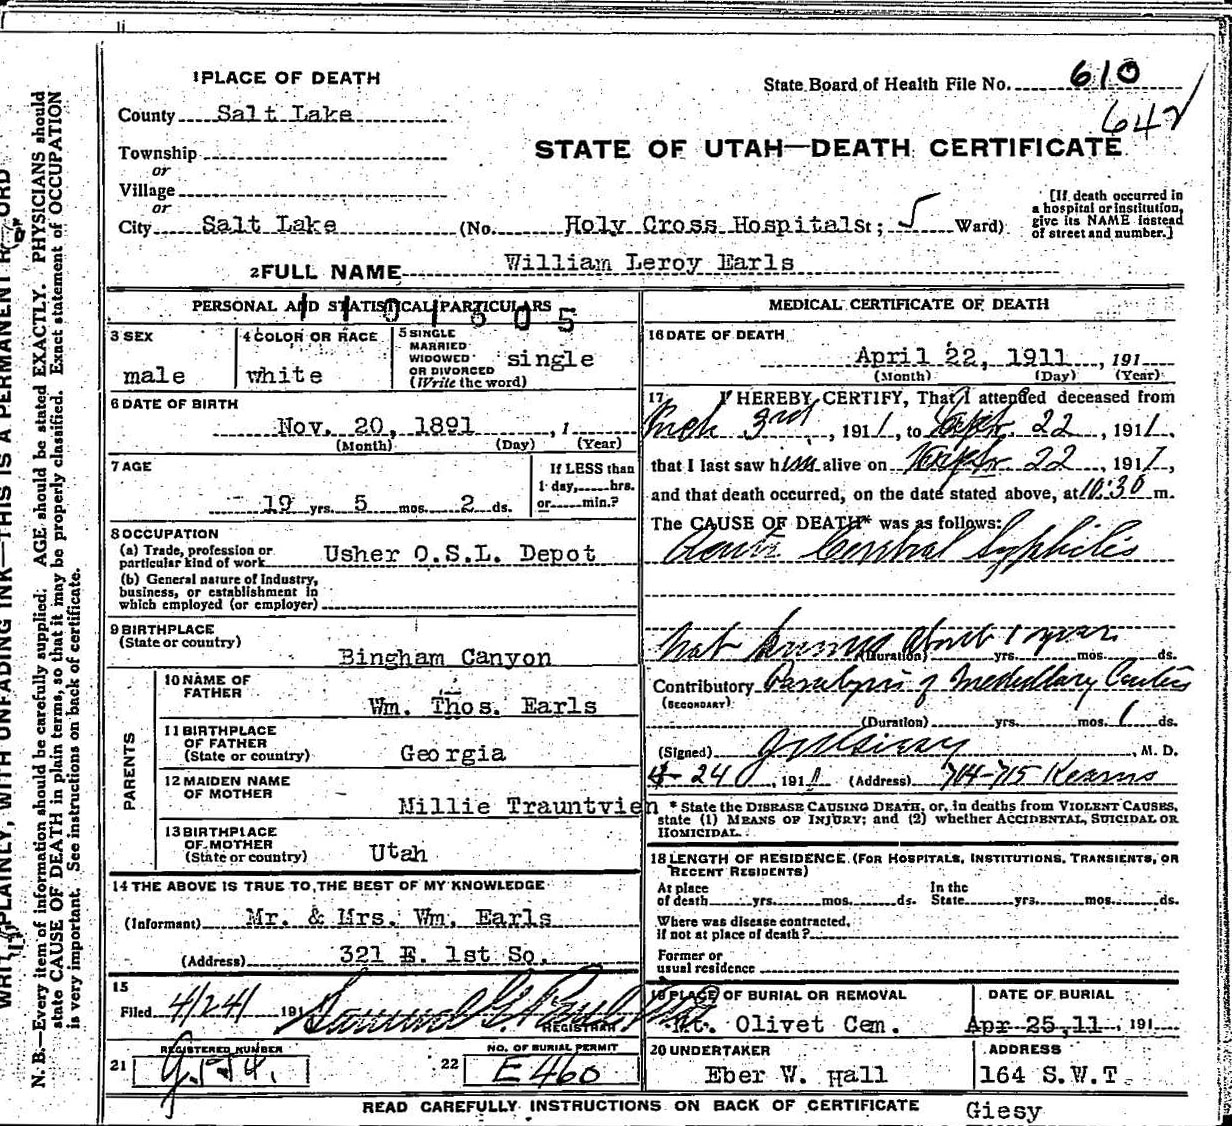 1 PLACE OF DEATH
State Board of Health File No. 610
642
County Salt Lake
STATE OF UTAH—DEATH CERTIFICATE
Township
or
Village
or
City Salt Lake (No. Holy Cross Hospital St; 5 Ward)
[If death occurred in
a hospital or institution,
give its NAME instead
of street and number.]
2 FULL NAME William Leroy Earls
PERSONAL AND STATISTICAL PARTICULARS
1101505
3 SEX
male
4 COLOR OR RACE
white
5 SINGLE
MARRIED
WIDOWED
OR DIVORCED
(Write the word)
single
6 DATE OF BIRTH
Nov. 20, 1891, 1
(Month) (Day) (Year)
7 AGE
19 yrs. 5 mos. 2 ds.
If LESS than
1 day, hrs.
or min.?
8 OCCUPATION
(a) Trade, profession or
particular kind of work Usher O.S.L. Depot
(b) General nature of Industry,
business, or establishment in
which employed (or employer)
9 BIRTHPLACE
(State or country)
Bingham Canyon
PARENTS
10 NAME OF
FATHER
Wm. Thos. Earls
11 BIRTHPLACE
OF FATHER
(State or country) Georgia
12 MAIDEN NAME
OF MOTHER
Millie Trauntvien
13 BIRTHPLACE
OF MOTHER
(State or country) Utah
14 THE ABOVE IS TRUE TO THE BEST OF MY KNOWLEDGE
(Informant) Mr. & Mrs. Wm. Earls
(Address) 321 E. 1st So.
15
Filed 4/24/ 191
REGISTRAR
21 REGISTERED NUMBER
22 NO. OF BURIAL PERMIT
E460
MEDICAL CERTIFICATE OF DEATH
16 DATE OF DEATH
April 22, 1911, 191
(Month) (Day) (Year)
17 I HEREBY CERTIFY, That I attended deceased from
Mch 3rd, 1911, to Apr. 22, 1911,
that I last saw him alive on Apr 22, 1911,
and that death occurred, on the date stated above, at 10:30 m.
The CAUSE OF DEATH* was as follows:
Acute Cerebral Syphilis
Not known about 1 year
(Duration) yrs. mos. ds.
Contributory Paralysis of Medullary Centers
(SECONDARY)
(Duration) yrs. mos. 1 ds.
(Signed) M. D.
4-24, 1911 (Address) 704-715 Kearns
* State the DISEASE CAUSING DEATH, or, in deaths from VIOLENT CAUSES,
state (1) MEANS OF INJURY; and (2) whether ACCIDENTAL, SUICIDAL OR
HOMICIDAL.
18 LENGTH OF RESIDENCE (FOR HOSPITALS, INSTITUTIONS, TRANSIENTS, OR
RECENT RESIDENTS)
At place
of death yrs. mos. ds.
In the
State yrs. mos. ds.
Where was disease contracted,
if not at place of death?
Former or
usual residence
19 PLACE OF BURIAL OR REMOVAL
Mt. Olivet Cem.
DATE OF BURIAL
Apr 25,11, 191
20 UNDERTAKER
Eber W. Hall
ADDRESS
164 S.W.T.
READ CAREFULLY INSTRUCTIONS ON BACK OF CERTIFICATE
Giesy
PLAINLY, WITH UNFADING INK—THIS IS A PERMANENT
N. B.—Every item of information should be carefully supplied. AGE should be stated EXACTLY. PHYSICIANS should
state CAUSE OF DEATH in plain terms, so that it may be properly classified. Exact statement of OCCUPATION
is very important. See instructions on back of certificate.